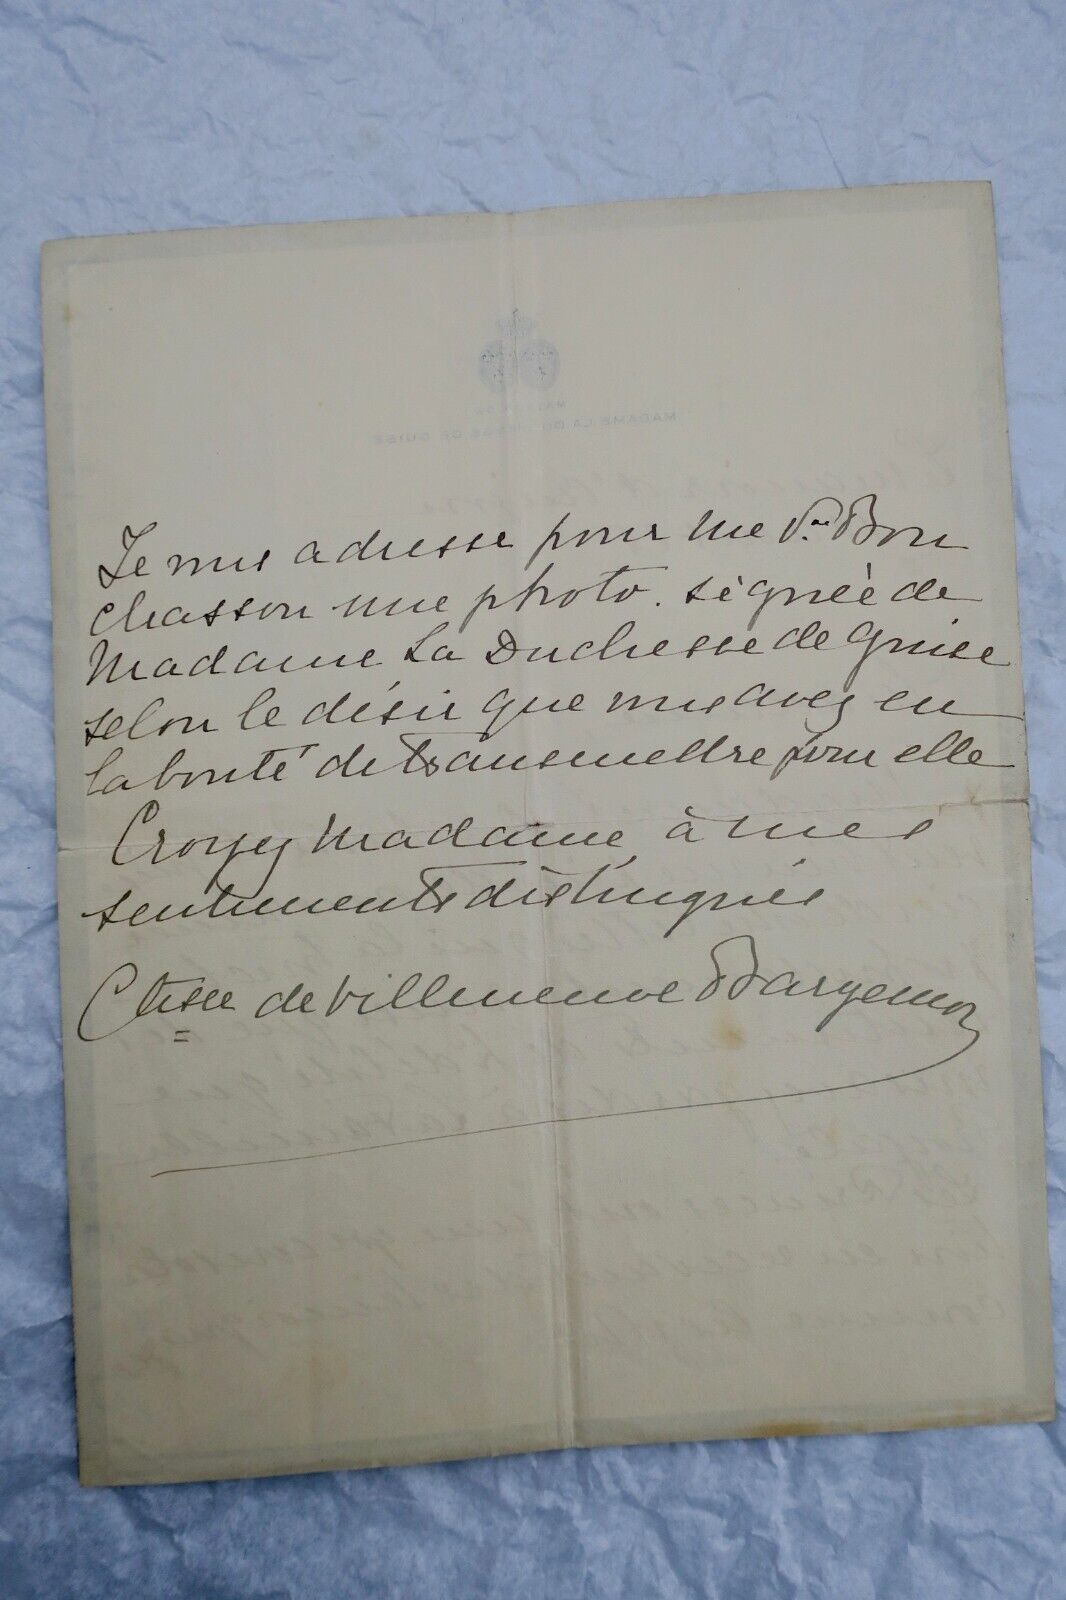 Je vous adresse pour Me Vve Bon
chasson une photo. signée de
Madame La Duchesse de Guise
selon le désir que vous avez eu
la bonté de transmettre pour elle
Croyez Madame, à mes
sentiments distingués
Ctesse de Villeneuve Bargemon